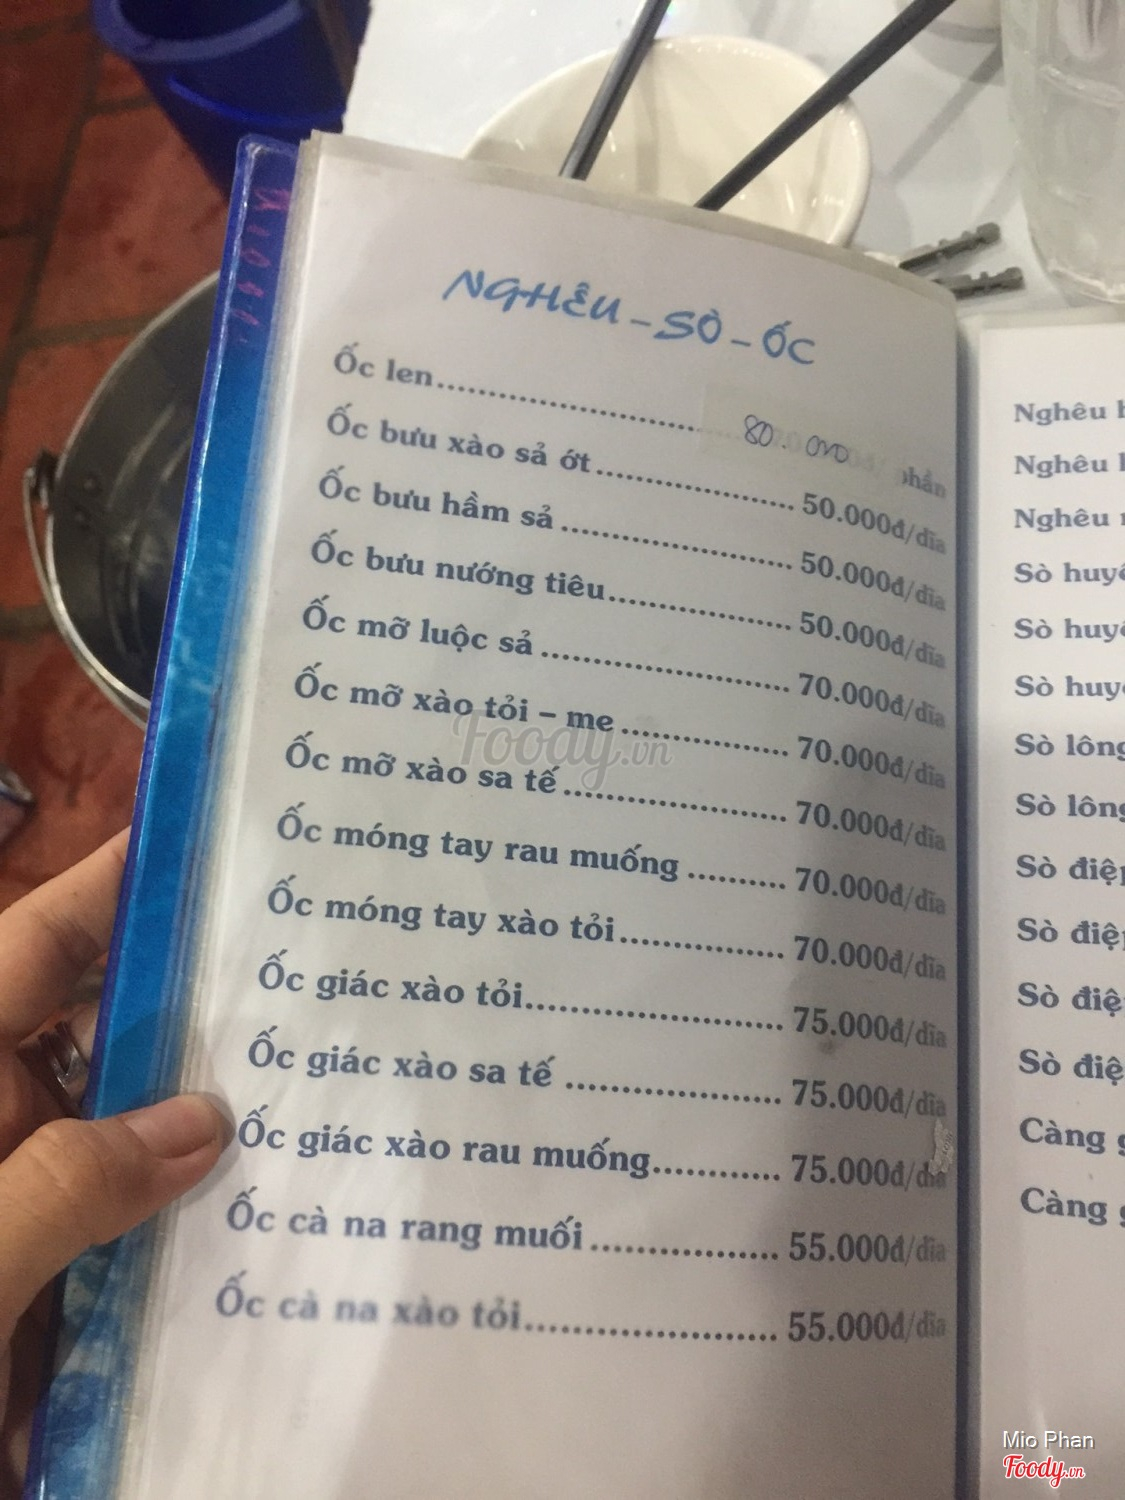 NGHÊU - SÒ - ỐC
Ốc len.......................... 80.000 phần
Ốc bưu xào sả ớt.................... 50.000đ/dĩa
Ốc bưu hầm sả...................... 50.000đ/dĩa
Ốc bưu nướng tiêu.................. 50.000đ/dĩa
Ốc mỡ luộc sả........................ 70.000đ/dĩa
Ốc mỡ xào tỏi – me................ 70.000đ/dĩa
Ốc mỡ xào sa tế...................... 70.000đ/dĩa
Ốc móng tay rau muống.......... 70.000đ/dĩa
Ốc móng tay xào tỏi................ 70.000đ/dĩa
Ốc giác xào tỏi........................ 75.000đ/dĩa
Ốc giác xào sa tế.................... 75.000đ/dĩa
Ốc giác xào rau muống............ 75.000đ/dĩa
Ốc cà na rang muối.................. 55.000đ/dĩa
Ốc cà na xào tỏi........................ 55.000đ/dĩa
Nghêu
Nghêu
Nghêu
Sò huyế
Sò huyế
Sò huyế
Sò lông
Sò lông
Sò điệp
Sò điệp
Sò điệ
Sò điệ
Càng g
Càng g
Foody.vn
Mio Phan
Foody.vn